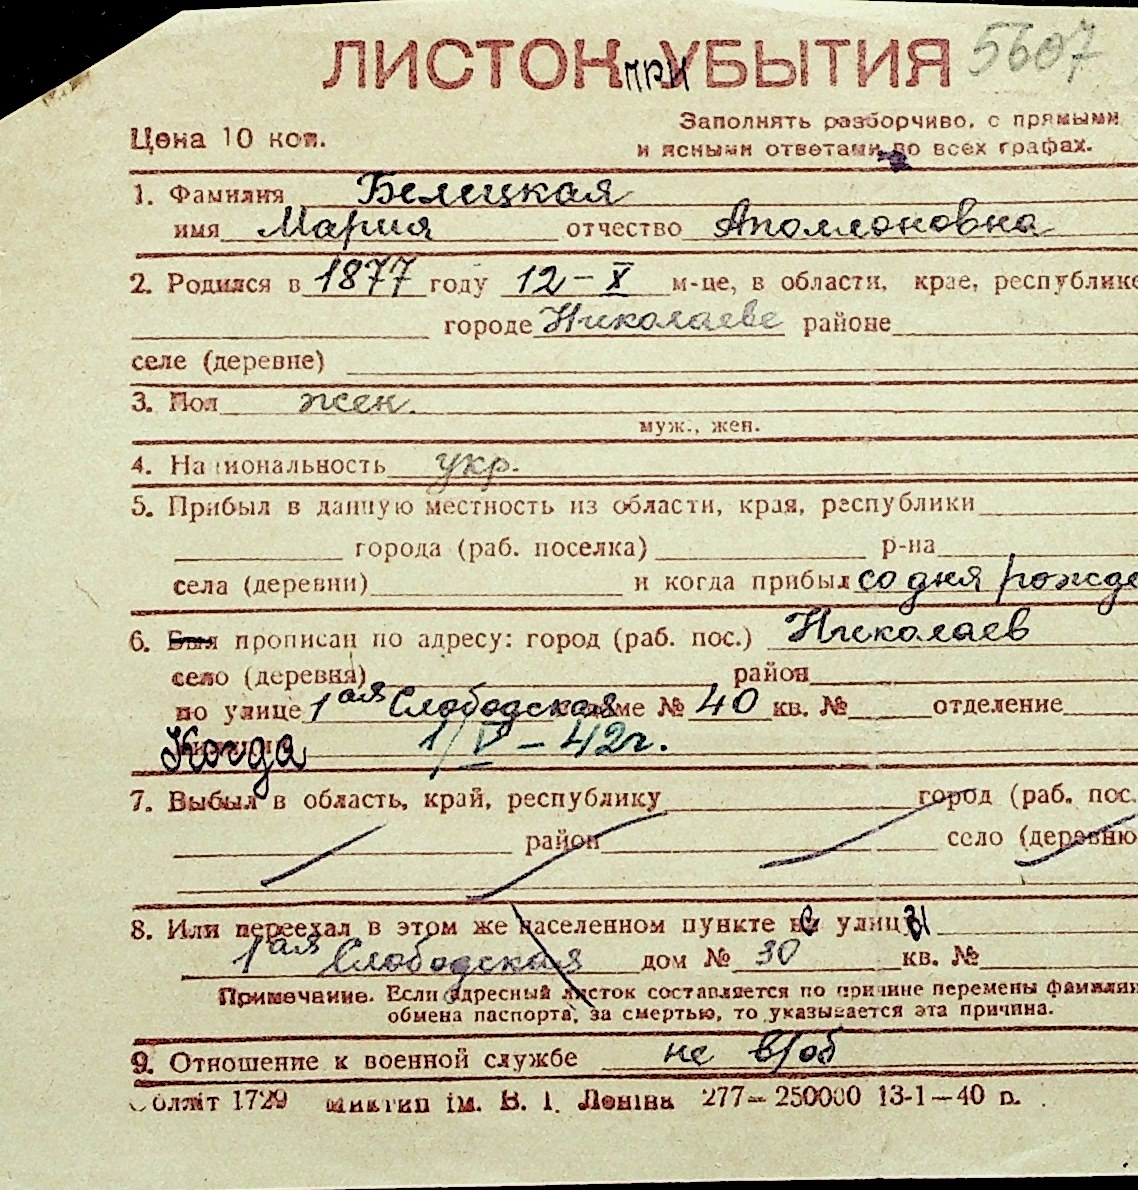 ЛИСТОК при УБЫТИЯ 5607
Цена 10 коп.
Заполнять разборчиво, с прямыми
и ясными ответами во всех графах.
1. Фамилия Белецкая
имя Мария отчество Аполлоновна
2. Родился в 1877 году 12-X м-це, в области, крае, республике
городе Николаеве районе
селе (деревне)
3. Пол жен.
муж., жен.
4. Национальность укр.
5. Прибыл в данную местность из области, края, республики
города (раб. поселка) р-на
села (деревни) и когда прибыл со дня рожде
6. Был прописан по адресу: город (раб. пос.) Николаев
село (деревня) район
по улице 1ая Слободская доме № 40 кв. № отделение
Когда 1/V-42г.
7. Выбыл в область, край, республику город (раб. пос.
район село (деревню
8. Или переехал в этом же населенном пункте с улицы
1ая Слободская дом № 30 кв. №
Примечание. Если адресный листок составляется по причине перемены фамилии
обмена паспорта, за смертью, то указывается эта причина.
9. Отношение к военной службе не в/об
Обллiт 1729 iм. В. I. Ленiна 277-250000 13-1-40 р.